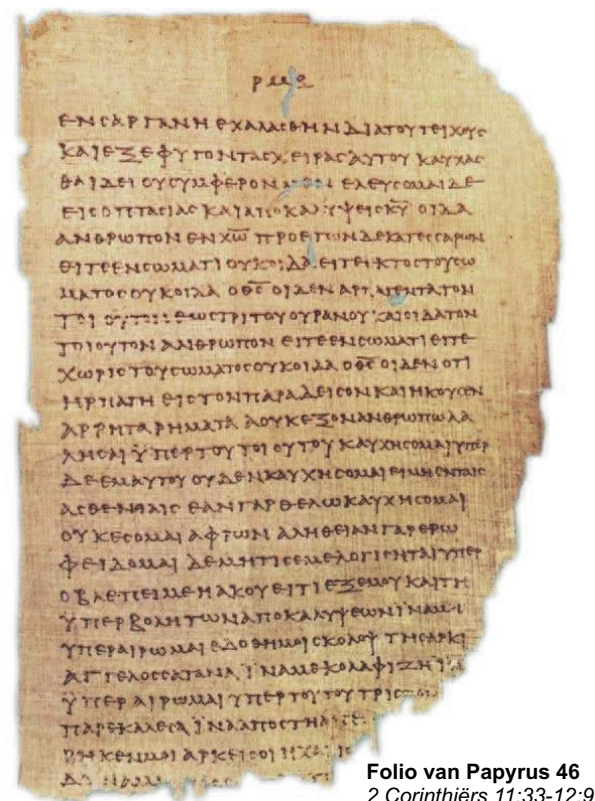 ΕΝϹΑΡΓΑΝΗ ΕΧΑΛΑϹΘΗΝ ΔΙΑΤΟΥΤΕΙΧΟΥϹ
ΚΑΙΕΞΕΦΥΓΟΝΤΑϹΧΕΙΡΑϹΑΥΤΟΥ ΚΑΥΧΑϹ
ΘΑΙΔΕΙ ΟΥϹΥΜΦΕΡΟΝ ΕΛΕΥϹΟΜΑΙΔΕ
ΕΙϹΟΠΤΑϹΙΑϹ ΚΑΙΑΠΟΚΑΛΥΨΕΙϹΚ̅Υ̅ ΟΙΔΑ
ΑΝΘΡΩΠΟΝ ΕΝ Χ̅Ω̅ ΠΡΟΕΤΩΝΔΕΚΑΤΕϹϹΑΡΩΝ
ΕΙΤΕΕΝϹΩΜΑΤΙΟΥΚΟΙΔΑ ΕΙΤΕΕΚΤΟϹΤΟΥϹΩ
ΜΑΤΟϹΟΥΚΟΙΔΑ Ο Θ̅Ϲ̅ ΟΙΔΕΝ ΑΡΠΑΓΕΝΤΑΤΟΝ
ΤΟΙΟΥΤΟΝ ΕΩϹΤΡΙΤΟΥΟΥΡΑΝΟΥ ΚΑΙΟΙΔΑΤΟΝ
ΤΟΙΟΥΤΟΝ ΑΝΘΡΩΠΟΝ ΕΙΤΕΕΝϹΩΜΑΤΙΕΙΤΕ
ΧΩΡΙϹΤΟΥϹΩΜΑΤΟϹΟΥΚΟΙΔΑ Ο Θ̅Ϲ̅ ΟΙΔΕΝ ΟΤΙ
ΗΡΠΑΓΗ ΕΙϹΤΟΝΠΑΡΑΔΕΙϹΟΝ ΚΑΙΗΚΟΥϹΕΝ
ΑΡΡΗΤΑΡΗΜΑΤΑ ΑΟΥΚΕΞΟΝΑΝΘΡΩΠΩΛΑ
ΛΗϹΑΙ ΫΠΕΡΤΟΥΤΟΙΟΥΤΟΥ ΚΑΥΧΗϹΟΜΑΙΥΠΕΡ
ΔΕΕΜΑΥΤΟΥ ΟΥΔΕΝΚΑΥΧΗϹΟΜΑΙΕΙΜΗΕΝΤΑΙϹ
ΑϹΘΕΝΙΑΙϹ ΕΑΝΓΑΡΘΕΛΩΚΑΥΧΗϹΟΜΑΙ
ΟΥΚΕϹΟΜΑΙ ΑΦΡΩΝ ΑΛΗΘΕΙΑΝΓΑΡΕΡΩ
ΦΕΙΔΟΜΑΙ ΔΕΜΗΤΙϹΕΜΕΛΟΓΙϹΗΤΑΙΥΠΕΡ
ΟΒΛΕΠΕΙΜΕΗΑΚΟΥΕΙΤΙΕΞΕΜΟΥ ΚΑΙΤΗ
ΫΠΕΡΒΟΛΗΤΩΝΑΠΟΚΑΛΥΨΕΩΝΪΝΑΜΗ
ΥΠΕΡΑΙΡΩΜΑΙ ΕΔΟΘΗΜΟΙϹΚΟΛΟΨ ΤΗϹΑΡΚΙ
ΑΓΓΕΛΟϹϹΑΤΑΝΑ ΪΝΑΜΕΚΟΛΑΦΙΖΗΪΝΑ
ΫΠΕΡΑΙΡΩΜΑΙ ΥΠΕΡΤΟΥΤΟΥΤΡΙϹ
ΠΑΡΕΚΑΛΕϹΑ ΪΝΑΑΠΟϹΤΗ
ΡΗΚΕΝΜΟΙ ΑΡΚΕΙϹΟΙΗΧΑΡΙϹ
Folio van Papyrus 46
2 Corinthiërs 11:33-12:9